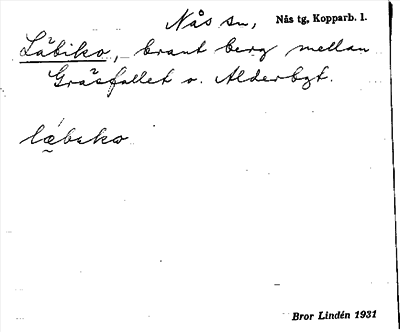 Nås sn, Nås tg, Kopparb. l.
Läbiko, brant berg mellan
Gräsfallet o. Alderbgt.
læbiko
Bror Lindén 1931